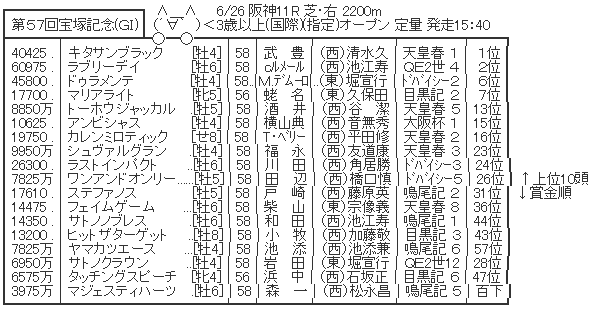 第57回宝塚記念(GI) (´▽`) 6/26 阪神11R 芝・右 2200m
<3歳以上(国際)(指定)オープン 定量 発走15:40
40425. キタサンブラック [牡4] 58 武 豊 (西)清水久 天皇春 1 1位
60975. ラブリーデイ [牡6] 58 cルメール (西)池江寿 QE2世 4 2位
45800. ドゥラメンテ [牡4] 58 M.デムーロ (東)堀宣行 ドバイシー2 6位
17700. マリアライト [牝5] 56 蛯 名 (東)久保田 目黒記 2 7位
8850万 トーホウジャッカル [牡5] 58 酒 井 (西)谷 潔 天皇春 5 13位
10625. アンビシャス [牡4] 58 横山典 (西)音無秀 大阪杯 1 15位
19750. カレンミロティック [せ8] 58 T・ベリー (西)平田修 天皇春 2 16位
9950万 シュヴァルグラン [牡4] 58 福 永 (西)友道康 天皇春 3 23位
26300. ラストインパクト [牡6] 58 川 田 (西)角居勝 ドバイシー3 24位
7825万 ワンアンドオンリー [牡5] 58 田 辺 (西)橋口慎 ドバイシー5 26位 ↑上位10頭
17610. ステファノス [牡5] 58 戸 崎 (西)藤原英 鳴尾記 2 31位 ↓賞金順
14475. フェイムゲーム [牡6] 58 柴 山 (東)宗像義 天皇春 8 36位
14350. サトノノブレス [牡6] 58 和 田 (西)池江寿 鳴尾記 1 44位
13200. ヒットザターゲット [牡8] 58 小 牧 (西)加藤敬 目黒記 3 43位
7825万 ヤマカツエース [牡4] 58 池 添 (西)池添兼 鳴尾記 6 57位
6950万 サトノクラウン [牡4] 58 岩 田 (東)堀宣行 QE2世12 28位
6575万 タッチングスピーチ [牝4] 56 浜 中 (西)石坂正 目黒記 6 47位
3975万 マジェスティハーツ [牡6] 58 森 一 (西)松永昌 鳴尾記 5 百下